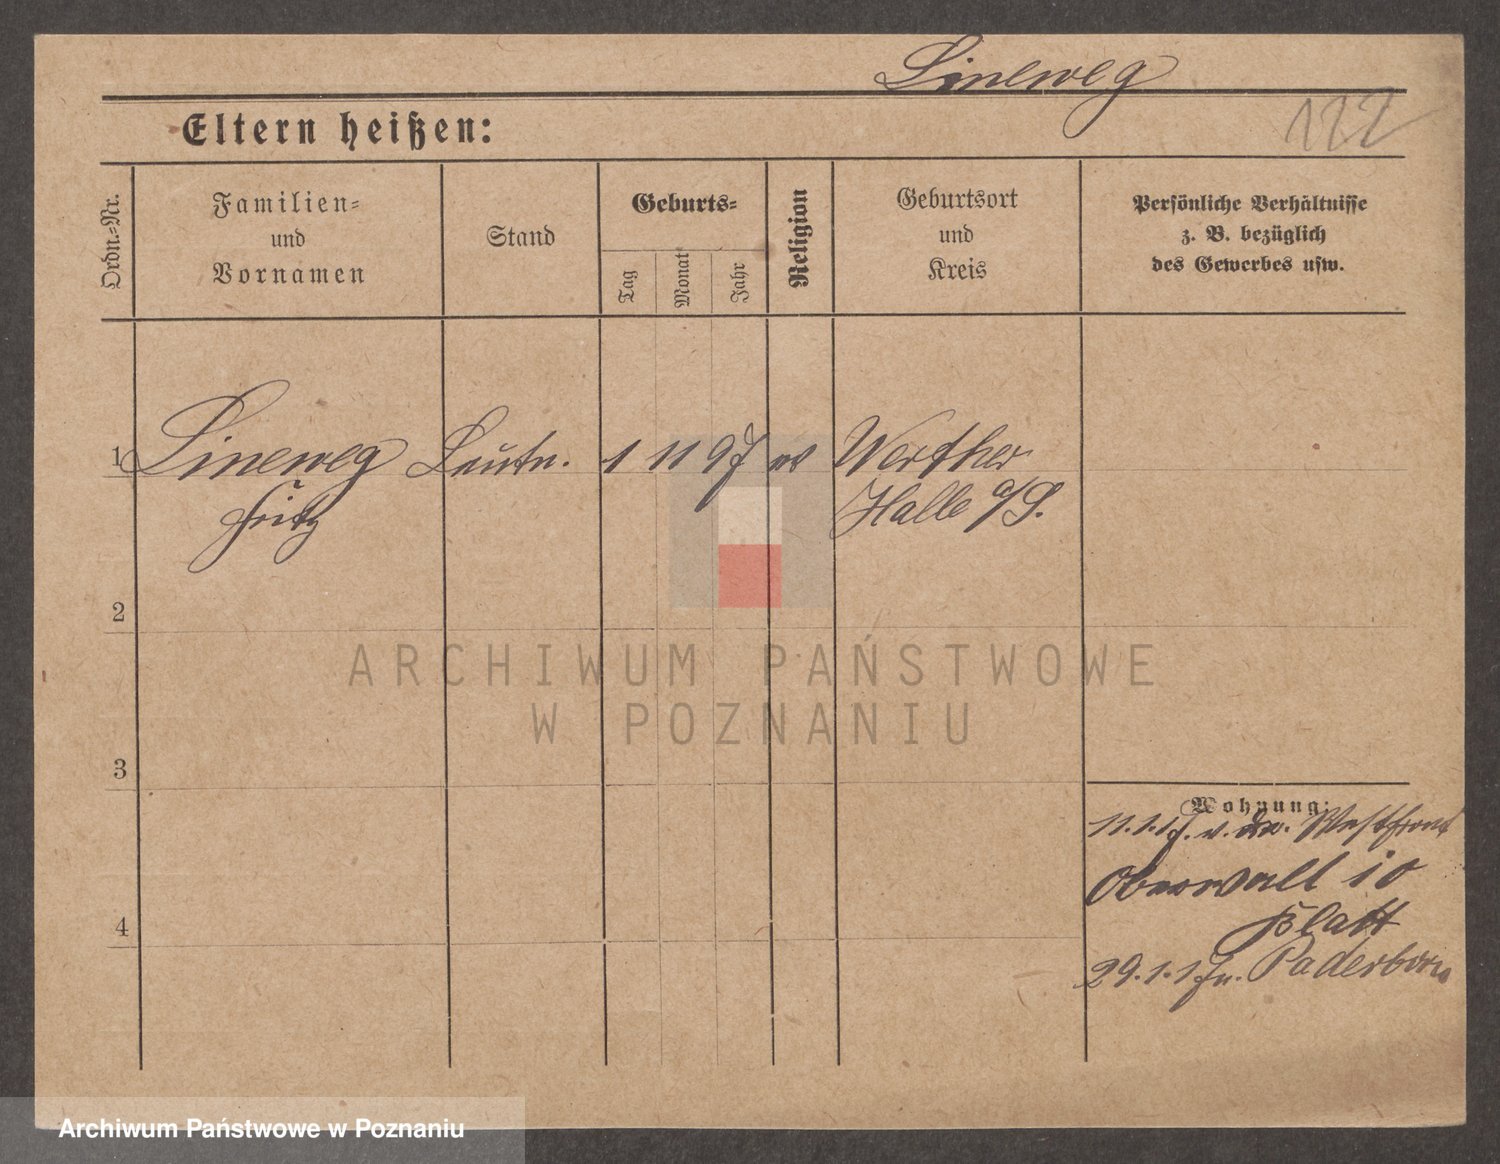 Lineweg
122
Eltern heißen:
Ordn.-Nr.
Familien-
und
Vornamen
Stand
Geburts-
Tag
Monat
Jahr
Religion
Geburtsort
und
Kreis
Persönliche Verhältnisse
z. B. bezüglich
des Gewerbes usw.
1 Lineweg Leutn. 1 11 97 ev Werther
Fritz Halle a/S.
2
3
4
Wohnung:
11.1.17. v. der Westfront
Oberwall 10
Platt
29.1.17 n. Paderborn
ARCHIWUM PAŃSTWOWE
W POZNANIU
Archiwum Państwowe w Poznaniu